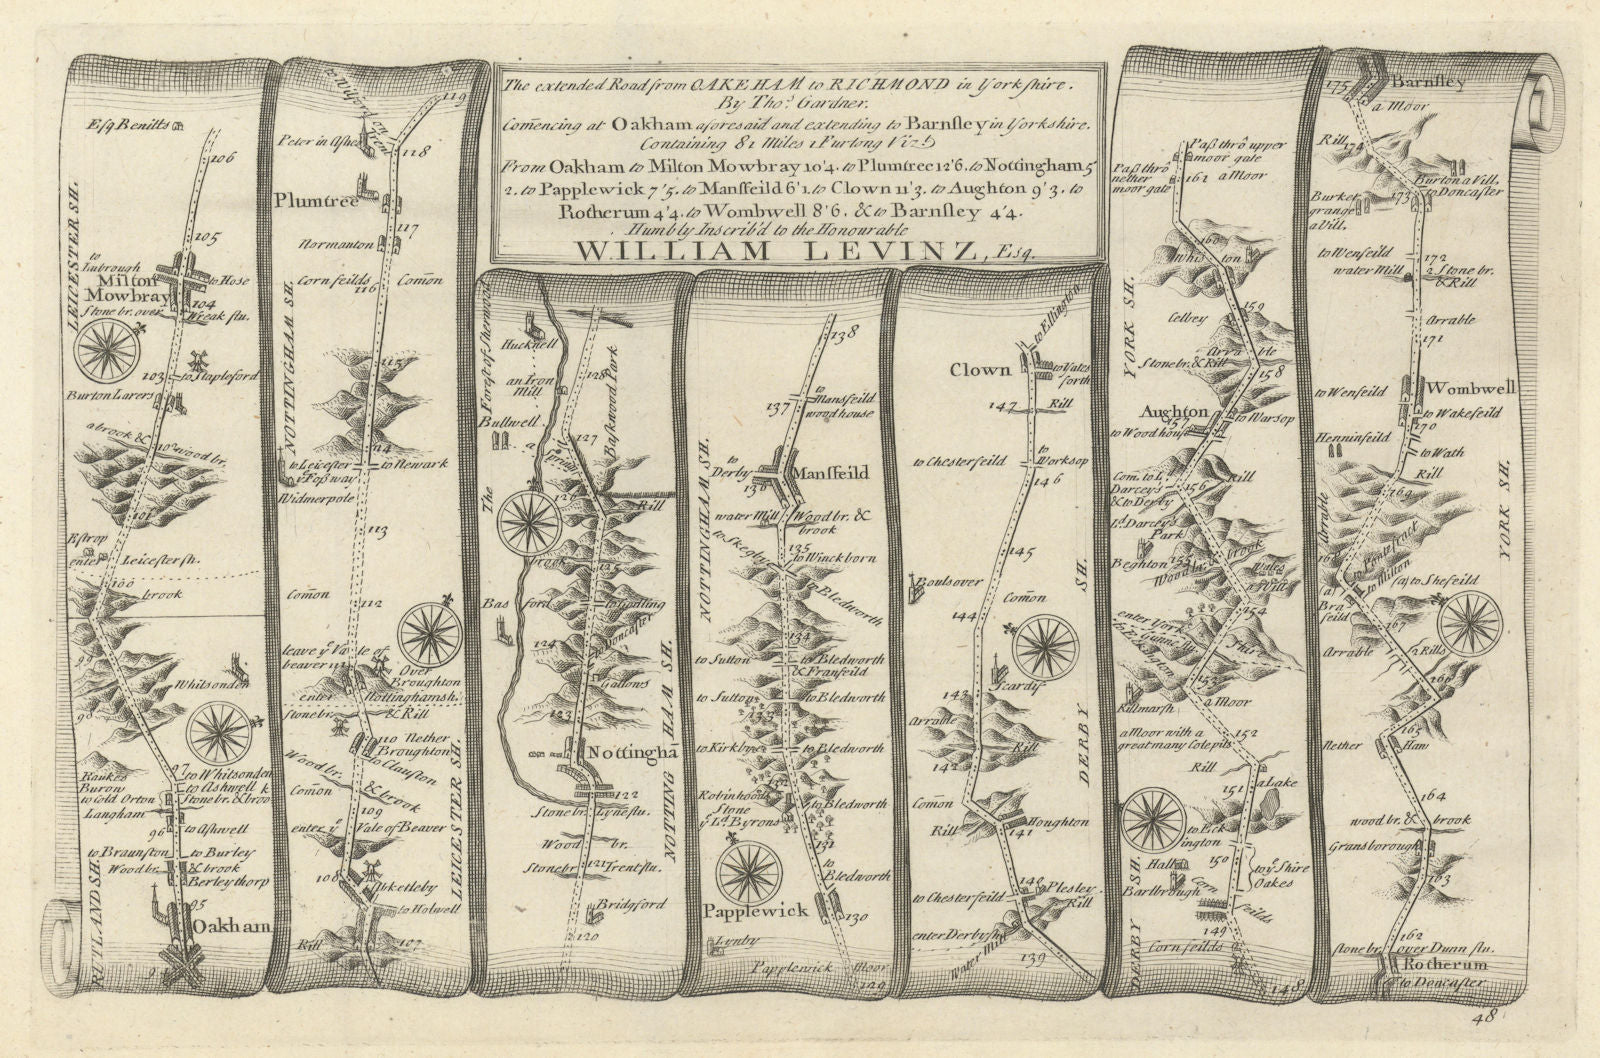 The extended Road from OAKEHAM to RICHMOND in Yorkshire.
By Tho.s Gardner.
Com̃encing at Oakham aforesaid and extending to Barnsley in Yorkshire.
Containing 81 Miles 1 Furlong Vizt
From Oakham to Milton Mowbray 10'4. to Plumtree 12'6. to Nottingham 5
2. to Papplewick 7'5. to Mansfeild 6'1. to Clown 11'3. to Aughton 9'3. to
Rotherum 4'4. to Wombwell 8'6. & to Barnsley 4'4.
Humbly Inscrib'd to the Honourable
WILLIAM LEVINZ, Esq.
Esq Benitts
106
LEICESTER SH.
105
to
Lubrough
Milton
Mowbray
to Hose
104
Stone br. over
Wreak flu.
103
to Stapleford
Burton Larers
a brook &
102 wood br.
101
Estrop
enter
Leicester sh.
100
brook
99
Whitsonden
98
97
to Whitsonden
Raukes
Burow
to Cold Orton
Langham
to Ashwell &
Stone br. & broo
96
to Ashwell
to Braunston
to Burley
Wood br.
& brook
Berley thorp
95
Oakham
RUTLAND SH.
to Wilford on
Trent
119
Peter in Ashes
118
Plumtree
117
Normanton
Corn feilds
Com̃on
116
NOTTINGHAM SH.
115
114
to Leicester
ye Foss way
to Newark
Widmerpole
113
Com̃on
112
leave ye Vale of
beaver
111
Over
Broughton
enter
Nottinghamsh.
stone br.
& Rill
110
Nether
Broughton
to Clauston
Wood br.
& brook
Com̃on
109
enter ye
Vale of Beaver
108
Abketleby
to Holwell
Rill
107
LEICESTER SH.
The Forest of Sherwood
Hucknell
an Iron
Mill
128
Baskwood Park
Bullwell
127
a Spring
126
Rill
brook
125
Basford
to Gedling
to Doncaster
124
Gallows
123
Nottinghã
122
Stone br.
Lyne flu.
Wood br.
Stone br.
121
Trent flu.
Bridgford
120
NOTTING HAM SH.
138
137
to
Mansfeild
woodhouse
to
Derby
136
Mansfeild
water Mill
Wood br. &
brook
NOTTINGHAM SH.
to Skegby
135
to Winckborn
to Bledworth
134
to Sutton
to Bledworth
& Franfeild
to Sutton
to Bledworth
133
to Kirkby
to Bledworth
132
Robinhoods
Stone
to Bledworth
ye Ld. Byrons
131
to
Bledworth
Papplewick
130
Lynby
Papplewick Moor
129
to Ellington
Clown
to Yates
forth
147
Rill
to
Worksop
to Chesterfeild
146
145
Boulsover
Com̃on
144
SH.
Scardif
143
Arrable
Rill
142
DERBY
Com̃on
Rill
Houghton
141
140
Plesley
Rill
to Chesterfeild
enter Derbysh.
Water Mill
139
Pass thrô upper
moor gate
Pass thrô
nether
moor gate
162
a Moor
160
Whiston
YORK SH.
159
Celbey
Arrable
Stone br. & Rill
158
Aughton
157
to Warsop
to Woodhouse
Com. to L.
Darcey's
& to Derby
156
Rill
Ld. Darcey's
Park
Beghton
155
brook
Wood br.
Wales
a Vill.
154
enter York
Shire
to Eckington
153
Killmarsh
a Moor
a Moor with a
great many Cole pits
152
Rill
a Lake
151
to Eck
ington
150
to ye Shire
Oakes
Hall
Barlbrough
Corn
feilds
149
Corn feilds
148
DERBY SH.
175
Barnsley
a Moor
Rill
174
Burton a Vill.
to Doncaster
Burket
grange
a Vill.
173
to Wenfeild
172
water Mill
2 Stone br.
& Rill
Arrable
171
to Wenfeild
Wombwell
to Wakefeild
170
Henninfeild
to Wath
Rill
169
Arrable
168
to Pontefract
to Milton
(a) to Shefeild
(a)
Bra
feild
167
YORK SH.
Arrable
2 Rills
166
165
Nether
Haw
164
wood br. &
brook
Gransborough
163
162
stone br.
over Duan flu.
Rotherum
to Doncaster
48